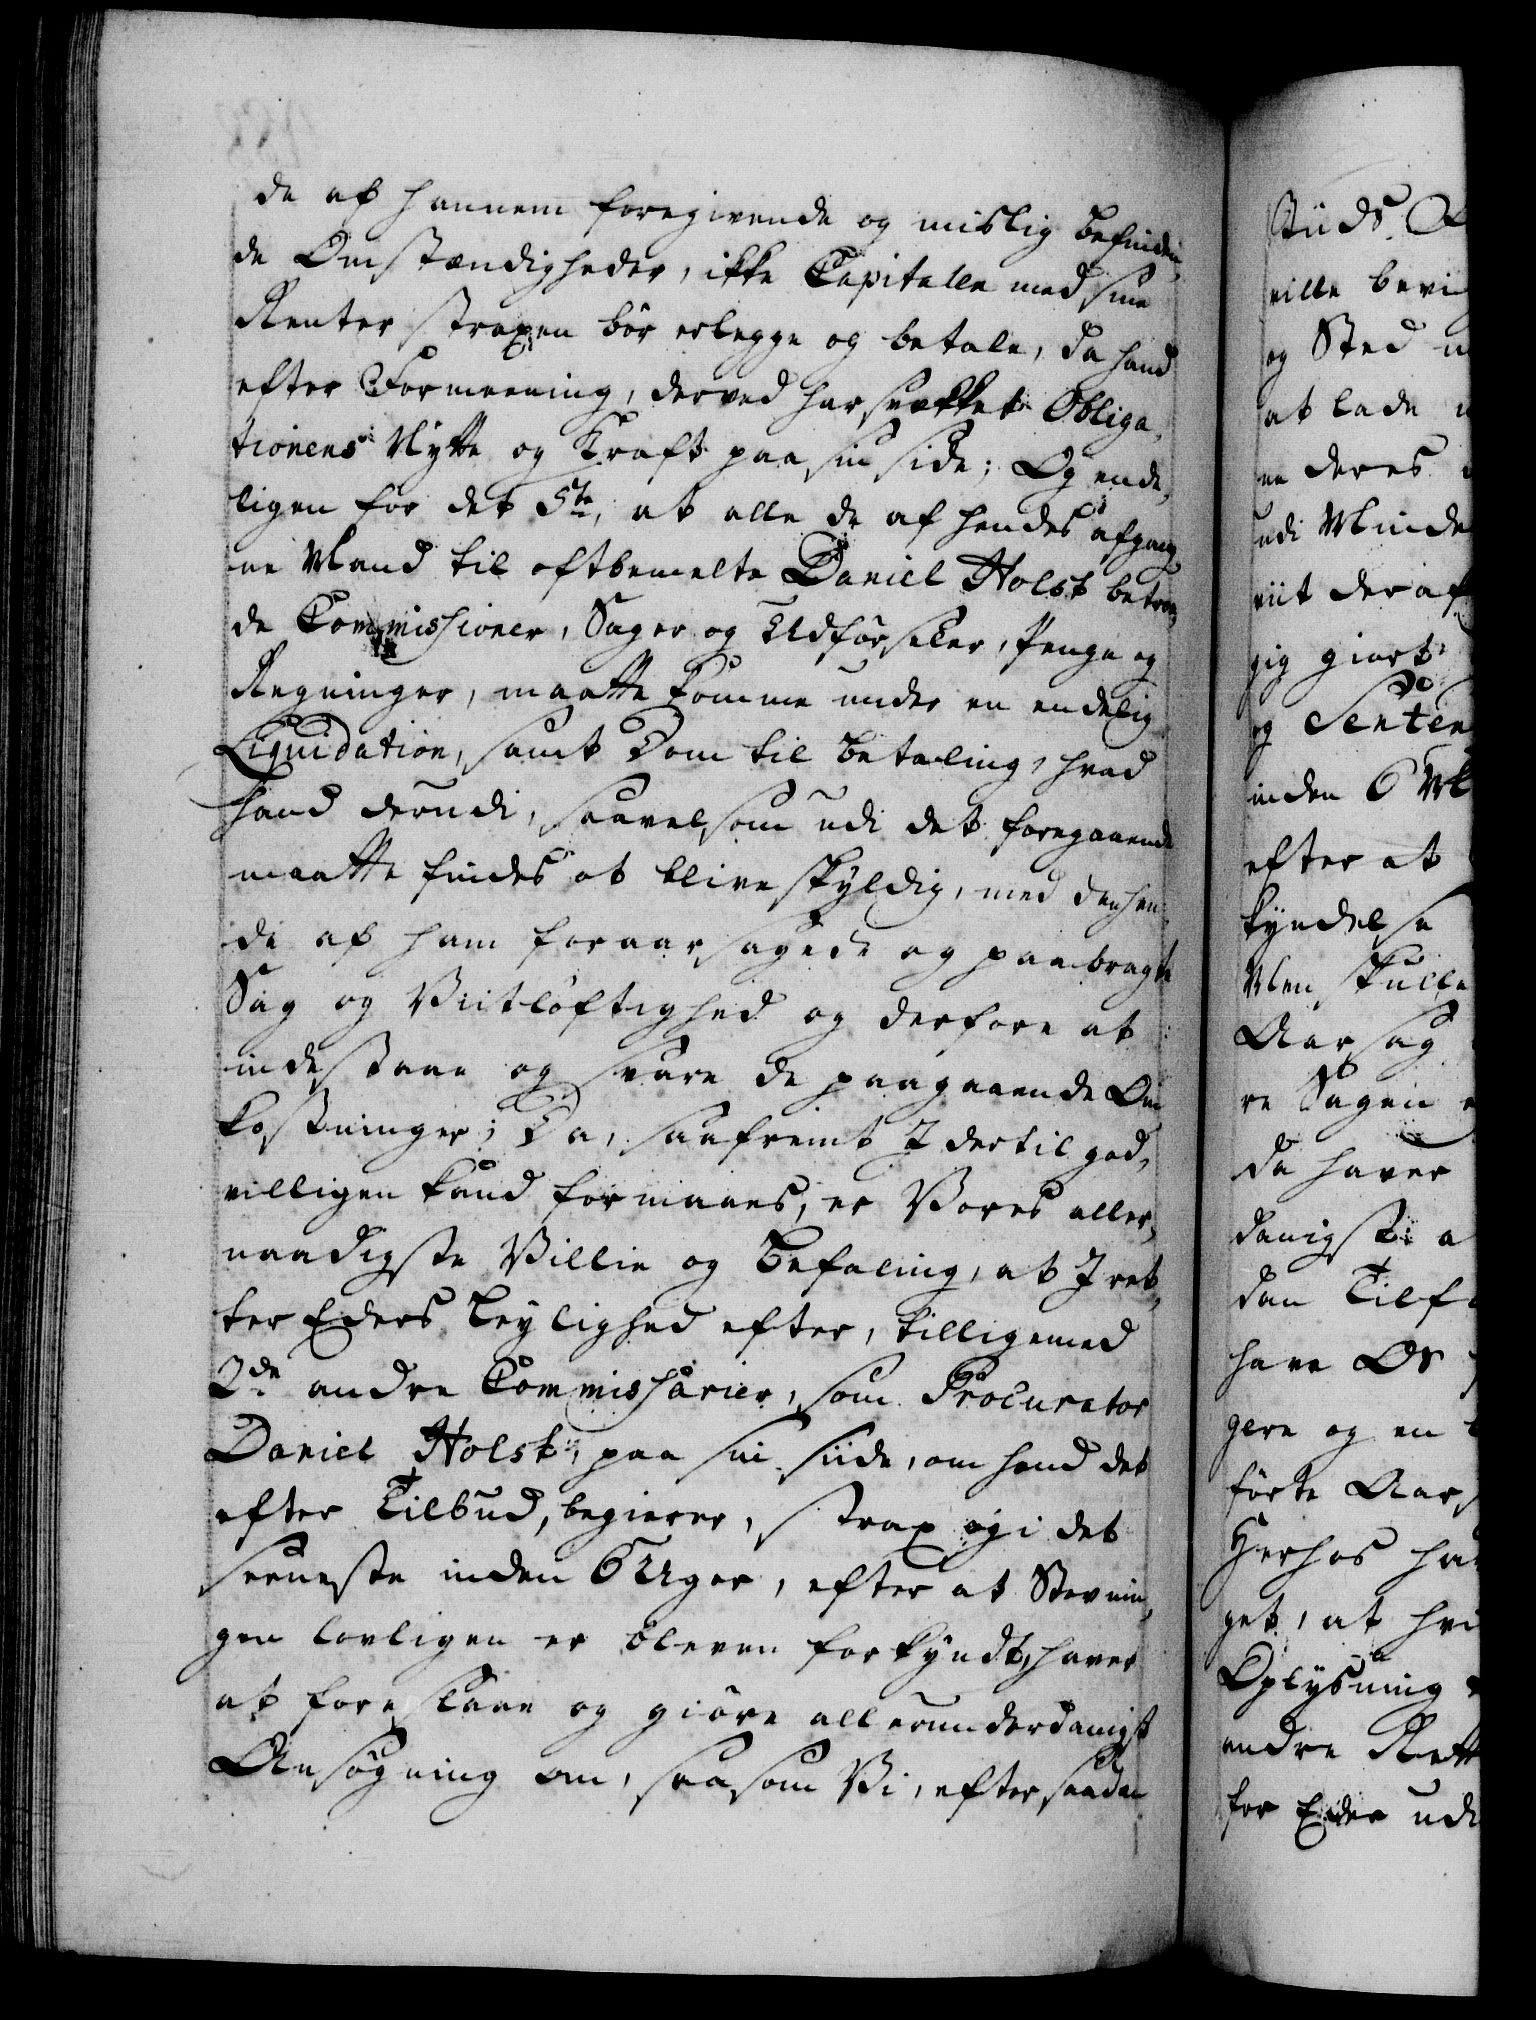 de af hannem foregivende og mislig befinden,
de Omstændigheder, ikke Capitalen med sine
Renter strax en bør erlegge og betale, da hand
efter Formeening, derved har svækket Obliga,
tionens Nytte og Kraft paa sin side; Og ende,
ligen for det 5te, at alle de af hendes afgang,
ne Mand til oftbemelte Daniel Holst betroe,
de Commissioner, Sager og Udførseler, Penge og
Regninger, maatte komme under en endelig
Liquidation, samt Dom til betaling, hvad
hand derudi, saavelsom udi det foregaaende
maatte findes at blive skyldig, med den hen,
de af ham foraarsagede og paabragte
Sag og Viitløftighed og derfore at
indestaae og svare de paagaaende Om,
kostninger; Da, saafremt I dertil god,
villigen kand formaaes, er Vores aller,
naadigste Villie og Befaling, at I ret,
ter Eders Leylighed efter, tilligemed
2de andre Commissarier, som Procurator
Daniel Holst, paa sin siide, om hand det
efter Tilbud, begierer, strax og i det
seeneste inden 6 Uger, efter at Stevnin,
gen lovligen er bleven forkyndt, haver
at foreslaae og giøre allerunderdanigst
Ansøgning om, saasom Vi, efter saadan
Stiids
ville bevi
og Sted
at lade
ne deres
udi Minde
viit deraf
gig giort
og Senten
inden 6
efter at
kyndelse
Men skulle
Aarsag
re Sagen
da haver
danigst a
dan Tilf
have Os
gere og en
førte Aars
herhos ha
get, at hvi
Oplysning
andre Rett
for Eder udi